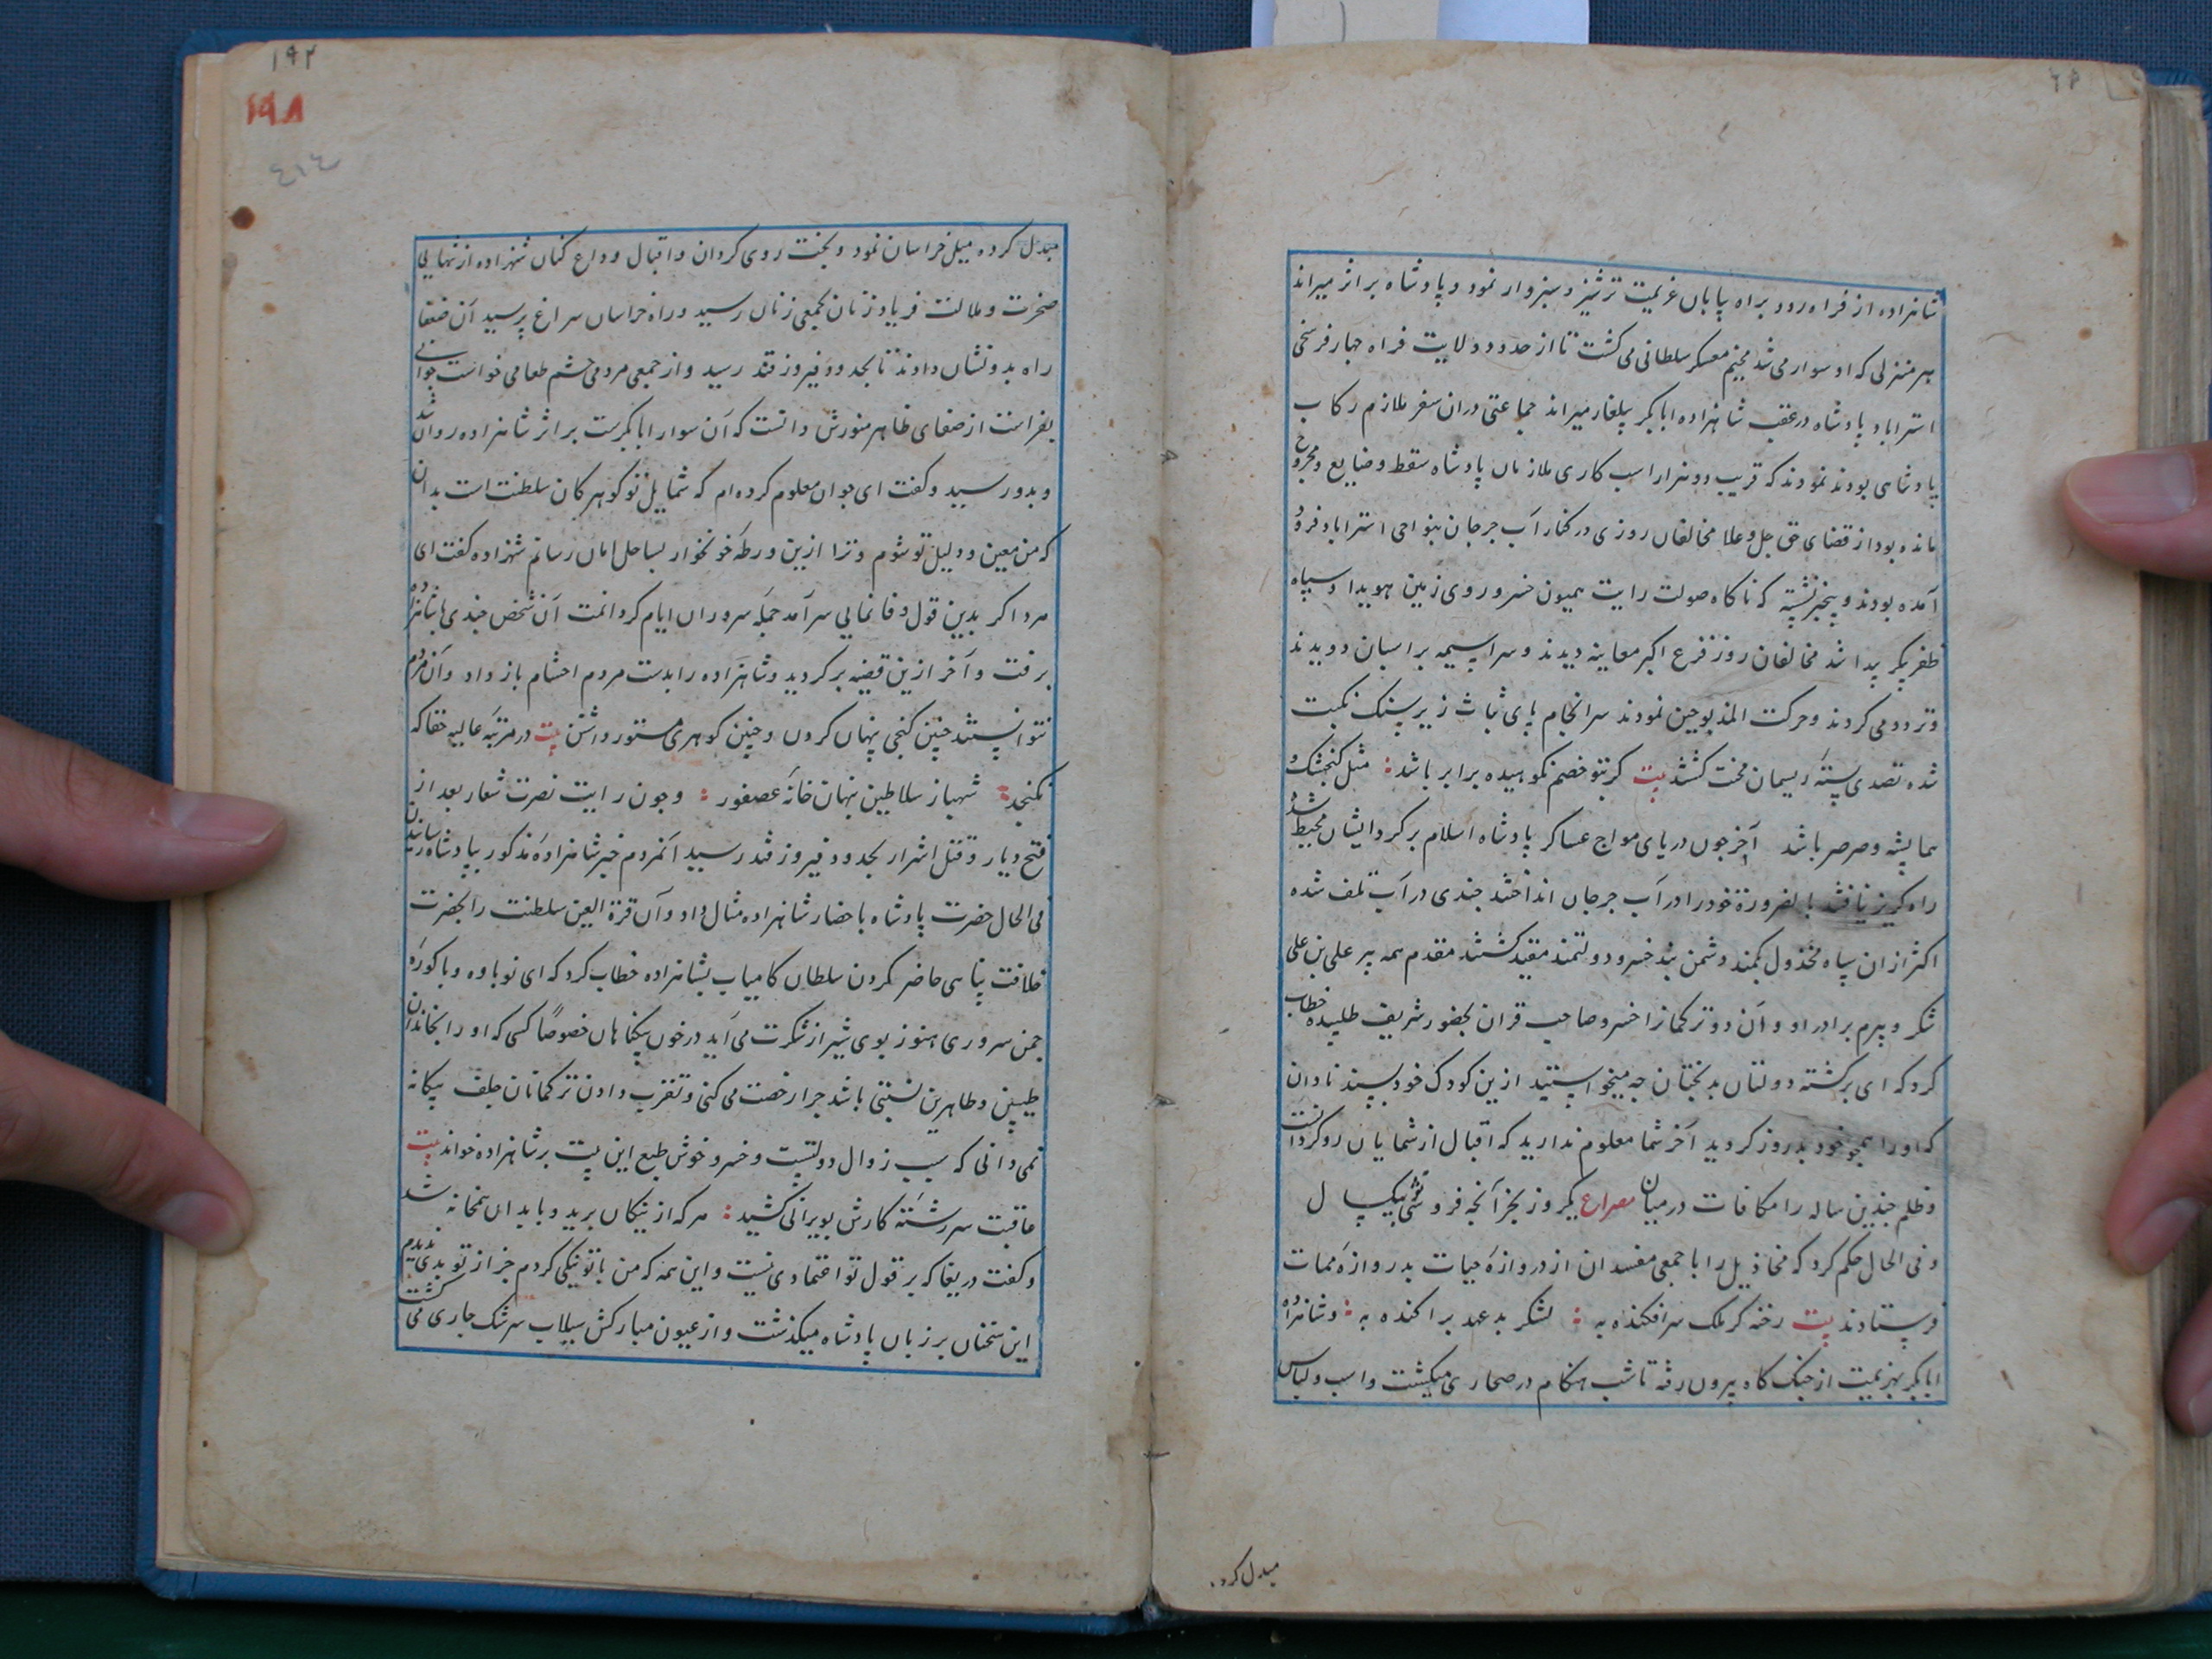 شاهزاده از فراه رود براه پاپان عزیمت ترشیز و سبزوار نمود و پادشاه بر اثر میراند
بهر منزلی که او سوار می شد مخیم معسکر سلطانی می کشت تا از حدود ولایت فراه جهار فرسخی
استراباد پادشاه در عقب شاهزاده ابابکر یلغار میراند جماعتی دران سفر ملازم رکاب
پادشاهی بودند نمودند که قریب دو هزار اسب کاری ملازمان پادشاه سقط و ضایع و مجروح
مانده بود از قضای حق جل و علا مخالفان روزی در کنار آب جرجان بنواحی استراباد فرود
آمده بودند و بیخبر نشسته که ناکاه صولت رایت همیون خسرو روی زمین هویدا و سپاه
ظفر پیکر پیدا شد مخالفان روز فزع اکبر معاینه دیدند و سراسیمه بر اسبان دویدند
و تردد می کردند و حرکت المذبوحین نمودند سرانجام پای ثبات زیر سنک نکبت
شده تصدی بسته ریسمان محنت کشتند بیت کر بتو خصم نکوهیده برابر باشد مثل کنجشک و
هما پشه و صرصر باشد آخر جون دریای مواج عساکر پادشاه اسلام بر کرد ایشان محیط شد
راه کریز نیافتند بالضرورة خود را در آب جرجان انداختند جندی در آب تلف شده
اکثر ازان سپاه مخذول بکمند دشمن بند خسرو دولتمند مقید کشتند مقدم همه پیر علی بن علی
شکر و بیرم برادر او و آن دو ترکمانرا خسرو صاحب قران بحضور شریف طلبیده خطاب
کرد که ای برکشته دولتان بدبختان جه میخواستید ازین کودک خود پسند نادان
که او را همجو خود بدروز کردید آخر شما معلوم ندارید که اقبال از شمایان روکردانست
و ظلم جندین ساله را مکافات درمیان مصراع یکروز بخر آنجه فروشی یکسال
و فی الحال حکم کرد که مخاذیل را با جمعی مفسدان از دروازه حیات بدروازه ممات
فرستادند بیت رخنه کر ملک سرافکنده به لشکر بدعهد پراکنده به و شاهزاده
ابابکر بهزیمت از جنک کاه بیرون رفته تا شب هنکام در صحاری میکشت و اسب و لباس
مبدل کرده
۱۹۲
۱۹۸
٤١٤
مبدل کرده میل خراسان نمود و بخت روی کردان و اقبال وداع کنان شهزاده از تنهایی
ضجرت و ملالت فریاد زنان بجمعی زنان رسید و راه خراسان سراغ پرسید آن ضعفا
راه بدو نشان دادند تا بحدود فیروزقند رسید و از جمعی مردمی حشم طعامی خواست جوانی
بفراست از صفای ظاهر منورش دانست که آن سوار ابابکرست بر اثر شاهزاده روان شد
و بدو رسید و کفت ای جوان معلوم کرده ام که شمایل تو کوهر کان سلطنت است بدان
که من معین و دلیل تو شوم و ترا ازین ورطه خونخوار بساحل امان رسانم شهزاده کفت ای
مرد اکر بدین قول وفا نمایی سرآمد جمله سروران ایام کردانمت آن شخص جندی با شاهزاده
برفت و آخر ازین قضیه برکردید و شاهزاده را بدست مردم احشام باز داد و آن مردم
نتوانستند جنین کنجی پنهان کردن و جنین کوهری مستور داشتن بیت در مرتبه عالیه حقا که
نکنجد شهباز سلاطین بنهان خانه عصفور و جون رایت نصرت شعار بعد از
فتح دیار و قتل اشرار بحدود فیروزقند رسید آنمردم خبر شاهزاده مذکور بپادشاه رسانیدن
فی الحال حضرت پادشاه باحضار شاهزاده مثال داد و آن قرة العین سلطنت را بحضرت
خلافت پناهی حاضر کردن سلطان کامیاب بشاهزاده خطاب کرد که ای نوباوه و باکوره
جمن سروری هنوز بوی شیر از شکرت می آید در خون بیکناهان خصوصا کسی که او را بخاندان
طیبین و طاهرین نسبتی باشد جرا رخصت می کنی و تقرب دادن ترکمانان جلف بیکانه
نمی دانی که سبب زوال دولتست و خسرو خوش طبع این بیت بر شاهزاده خواند بیت
عاقبت سررشته کارش بویرانی کشید هر که از نیکان برید و با بدان همخانه شد
و کفت دریغا که بر قول تو اعتمادی نیست و این همه که من با تو نیکی کردم جز از تو بدی ندیدم
این سخنان بر زبان پادشاه میکذشت و از عیون مبارکش سیلاب سرشک جاری می کشت